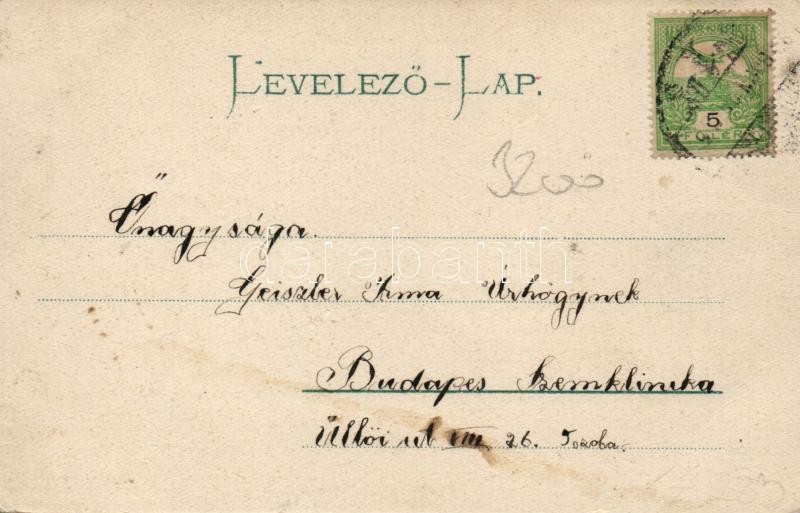 LEVELEZŐ-LAP.
5
3200
Őnagysága.
darabanth
Geiszler Irma Úrhőgynek
Budapes Szemklinika
Üllői ut VIII 26. 5 szoba.